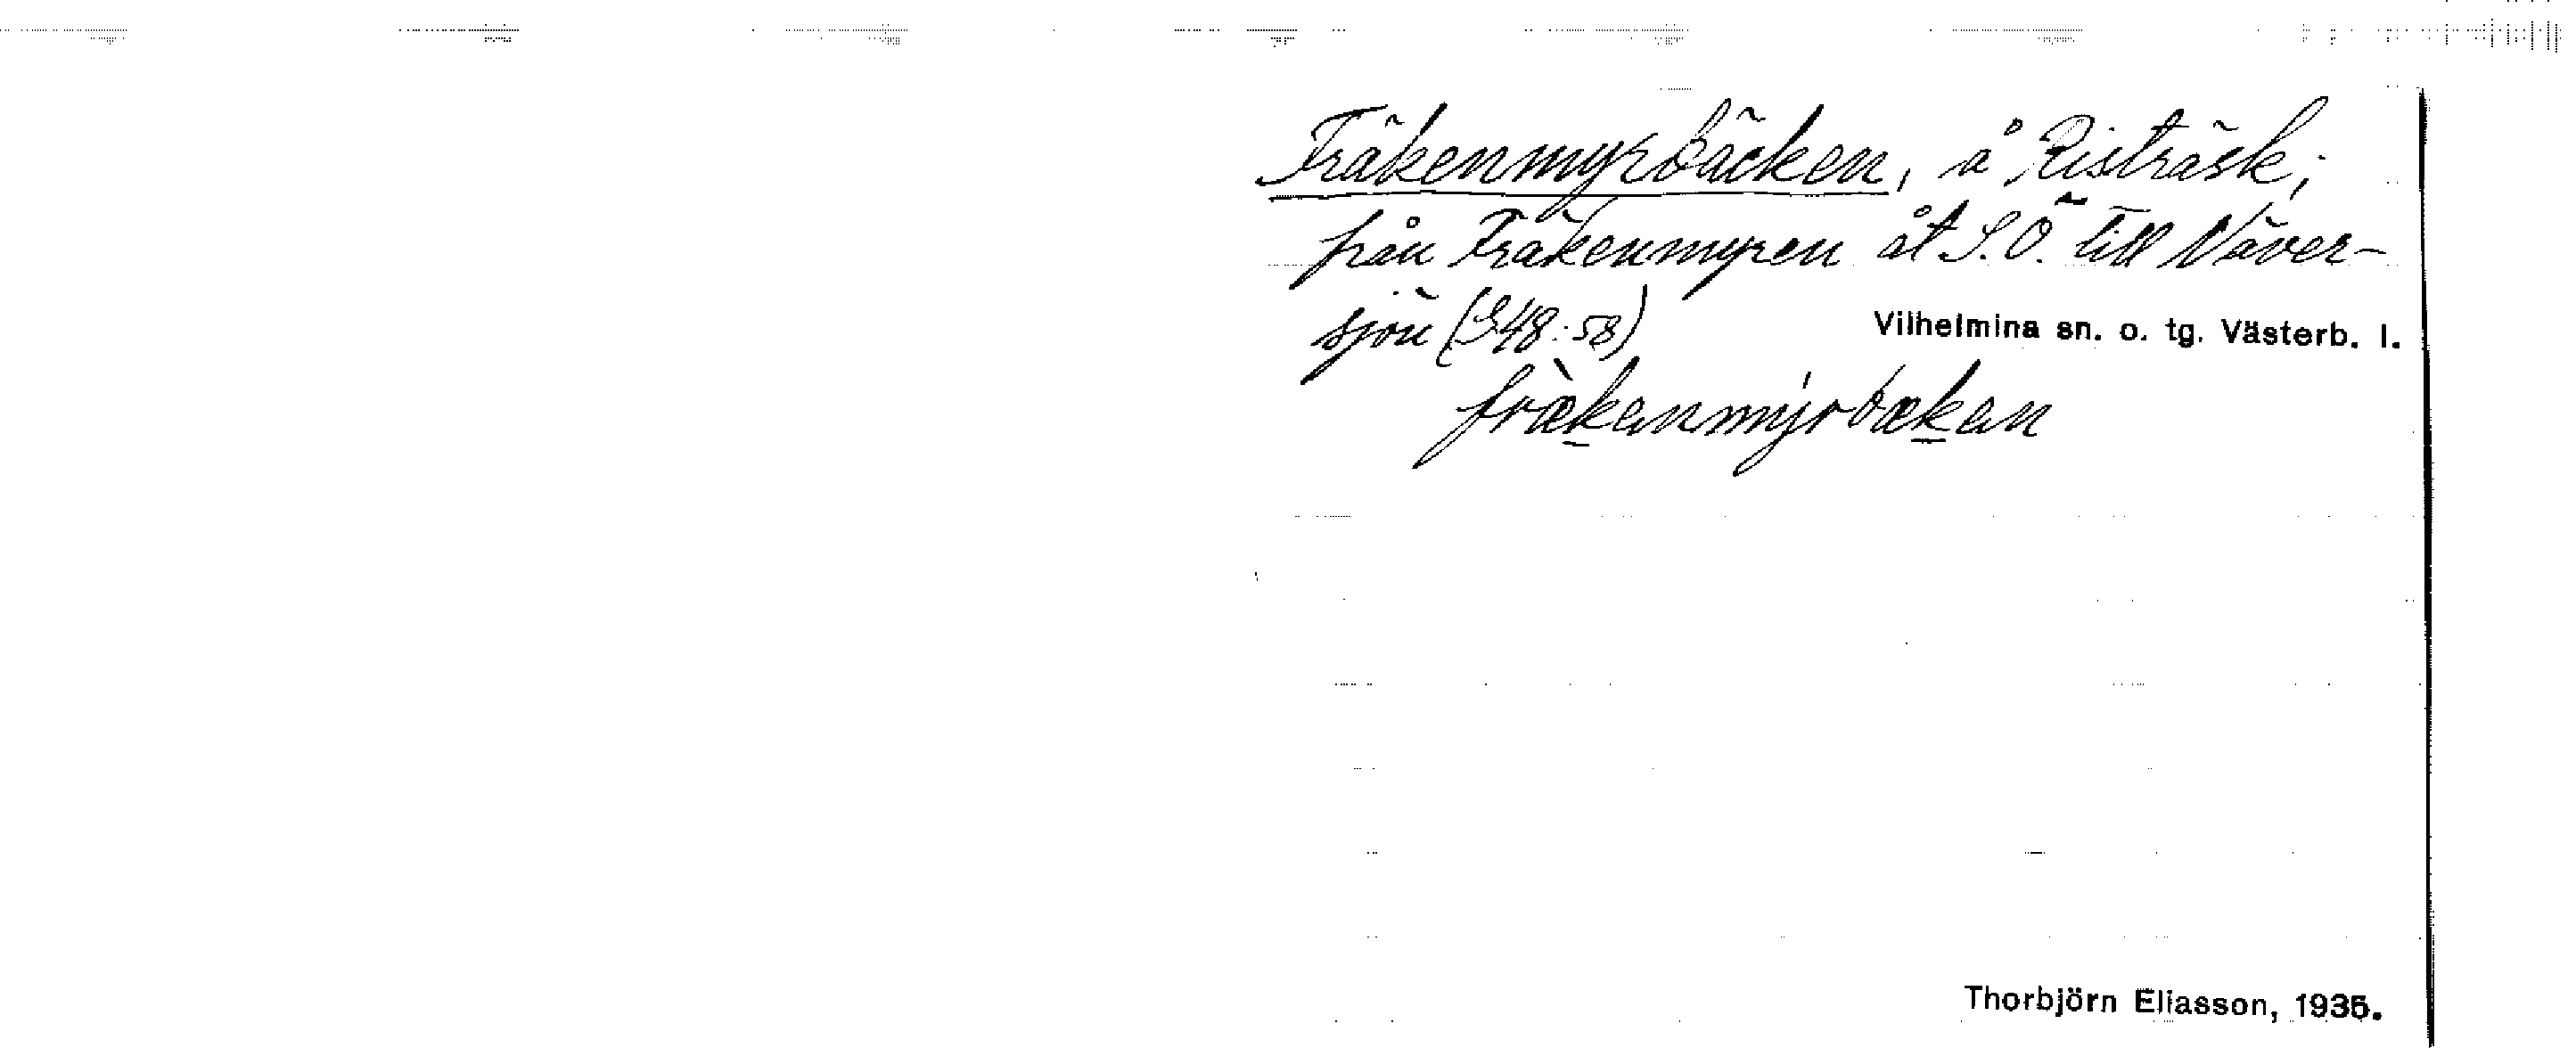 Fräkenmyrbäcken, å Risträsk;
från Fräkenmyren åt S.Ö. till Näver-
sjön (348:58)
Vilhelmina sn. o. tg. Västerb. l.
frækenmyrbæken
Thorbjörn Eliasson, 1935.